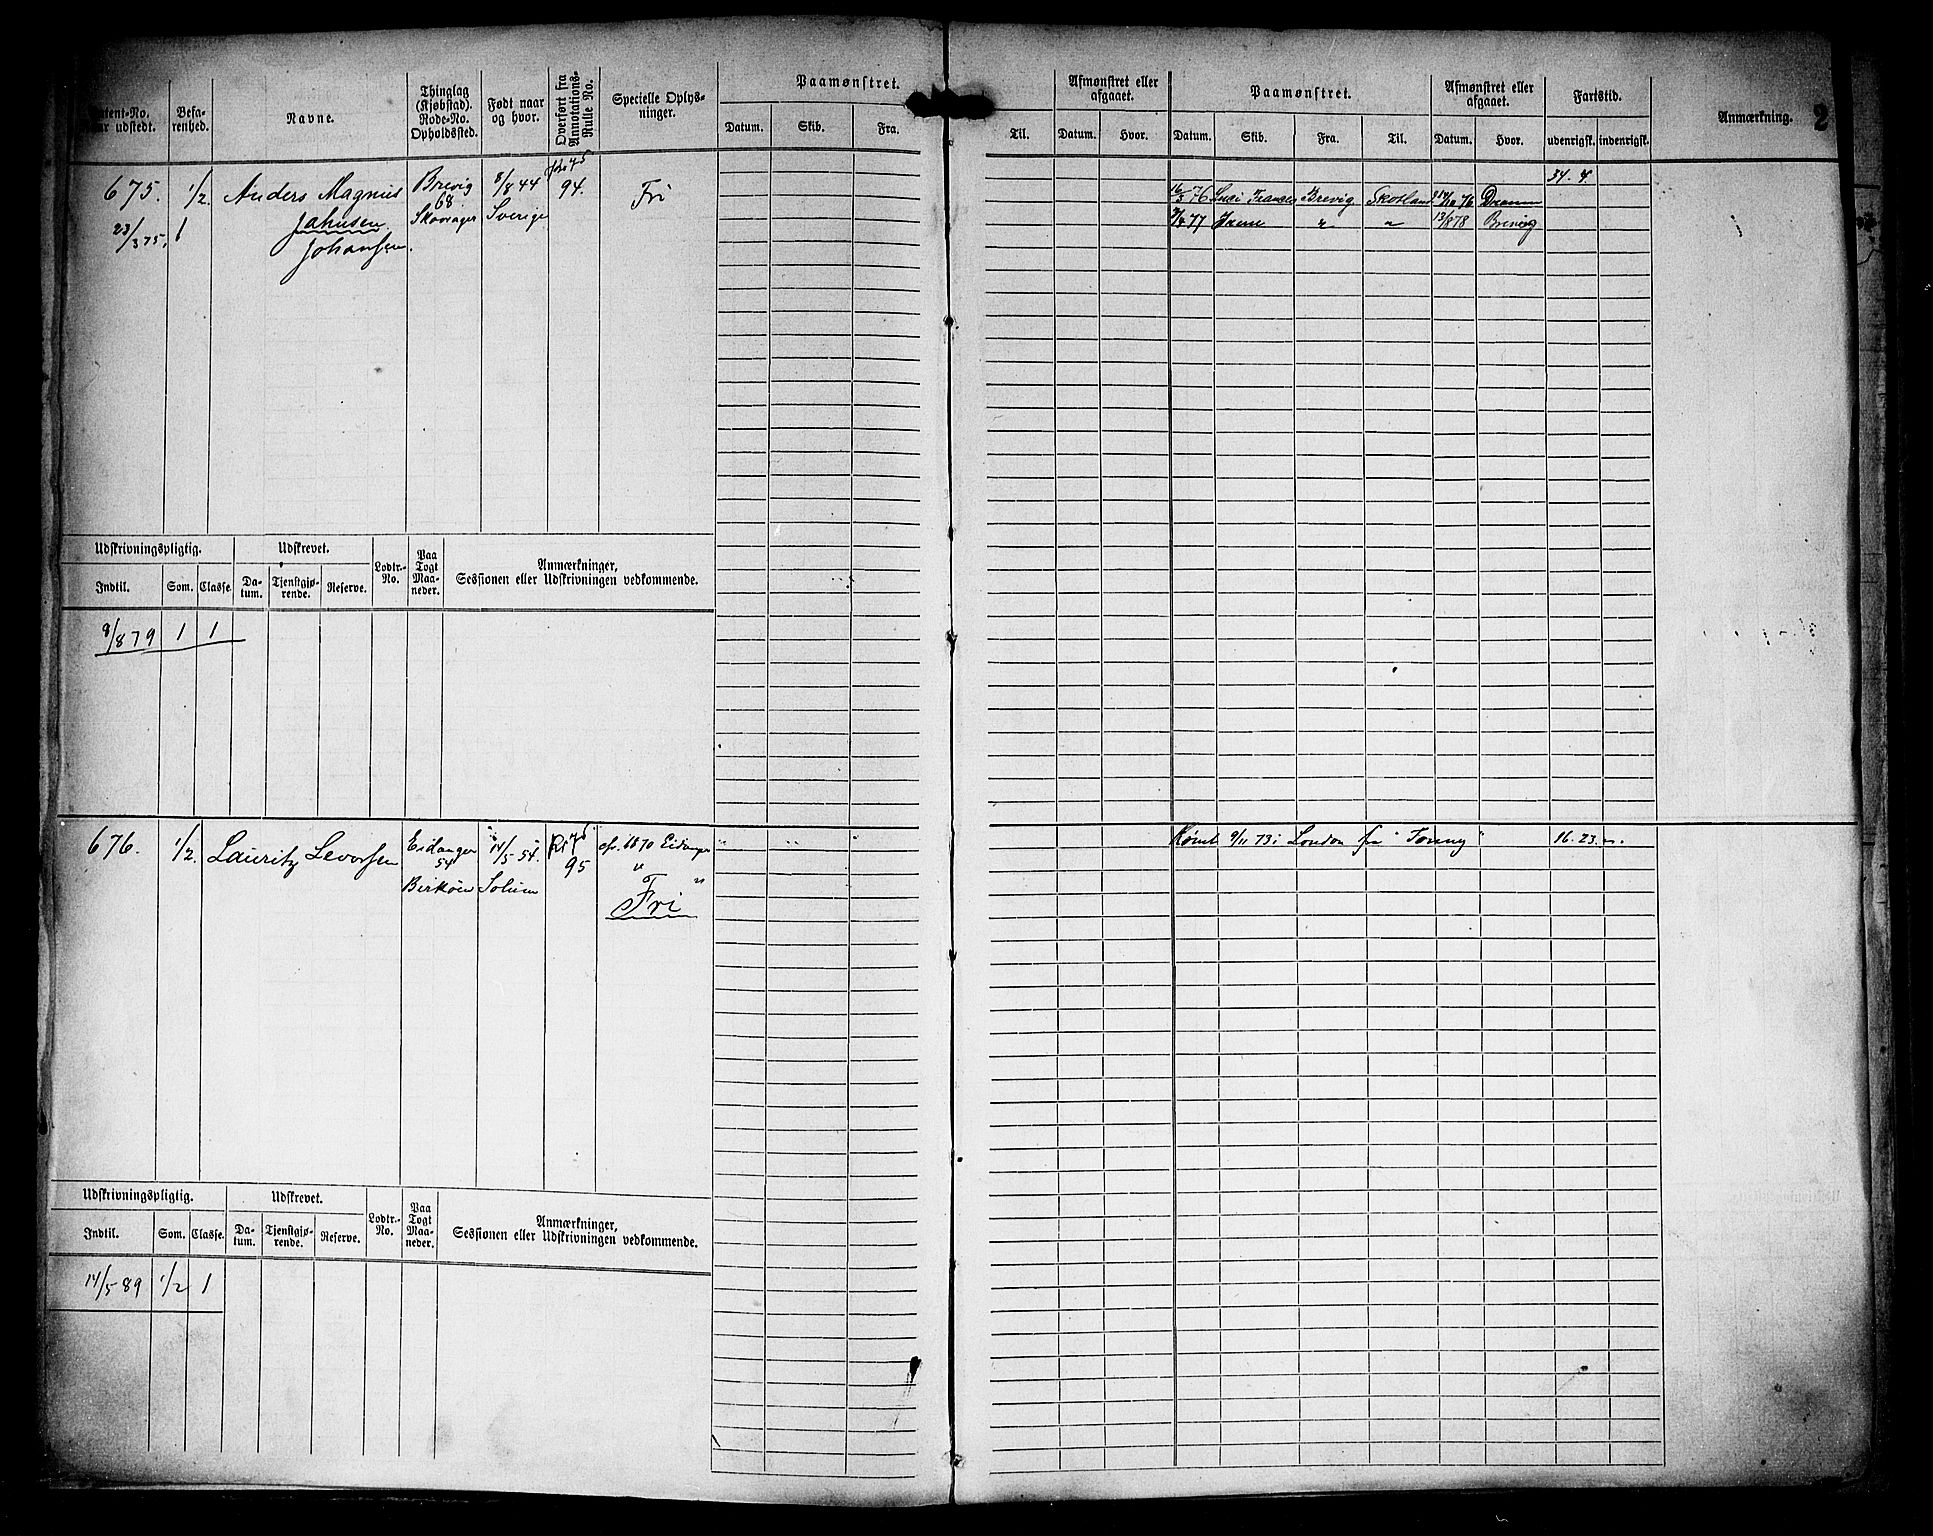 Patent-No. naar udstedt.
Befarenhed.
Navne.
Thinglag (Kjøbstad). Rode-No. Opholdssted.
Født naar og hvor.
Overført fra Annotations-Rulle No.
Specielle Oplysninger.
Paamønstret.
Datum. Skib. Fra. Til.
Afmønstret eller afgaaet.
Datum. Hvor.
Paamønstret.
Datum. Skib. Fra. Til.
Afmønstret eller afgaaet.
Datum. Hvor.
Fartstid.
udenrigsk. indenrigsk.
Anmærkning. 2
675. 1/2. Anders Magnus Brevig 8/8 44 94. Fri
68
23/3 75, 1 Jahnsen Skavager Sverige
Johansen.
34. 4.
16/3 76 Brevig Skotland 76
77 " " 13/8 78 Brevig
Udskrivningspligtig. Udskrevet. Lodtr.-No. Paa Togt Maaneder. Anmærkninger, Sessionen eller Udskrivningen vedkommende.
Indtil. Som. Classe. Datum. Tjenstgjørende. Reserve.
8/8 79 1 1
676. 1/2. Lauritz Levorsen Eidanger 14/5 54. 95 1870 Eidanger
54
Birköen Solum " "
Fri
" " "
Rømt 9/11 73 i London fra "Tommy" 16. 23.
Udskrivningspligtig. Udskrevet. Lodtr.-No. Paa Togt Maaneder. Anmærkninger, Sessionen eller Udskrivningen vedkommende.
Indtil. Som. Classe. Datum. Tjenstgjørende. Reserve.
14/5 89 1/2 1